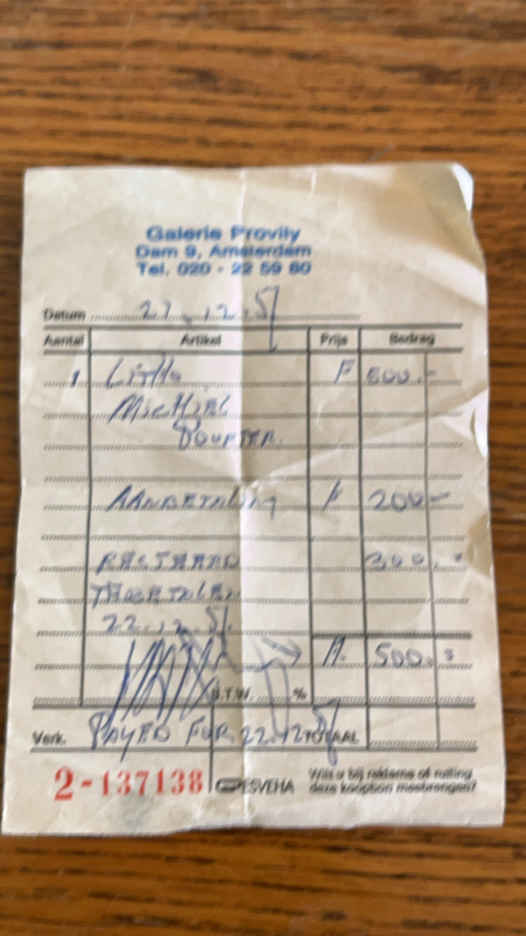 Galerie Provily
Dam 9, Amsterdam
Tel. 020 - 22 59 60
Datum
Aantal Artikel Prijs Bedrag
1 Litho F 500.-
MICHIEL
AANBETALING F 200-
RESTAND 300.=
22.12.
fl. 500.=
B.T.W. %
Verk. PAYED FUR 22.12 TOTAAL
2-137138 ESVEHA Wilt u bij reklame of ruiling
deze koopbon meebrengen?